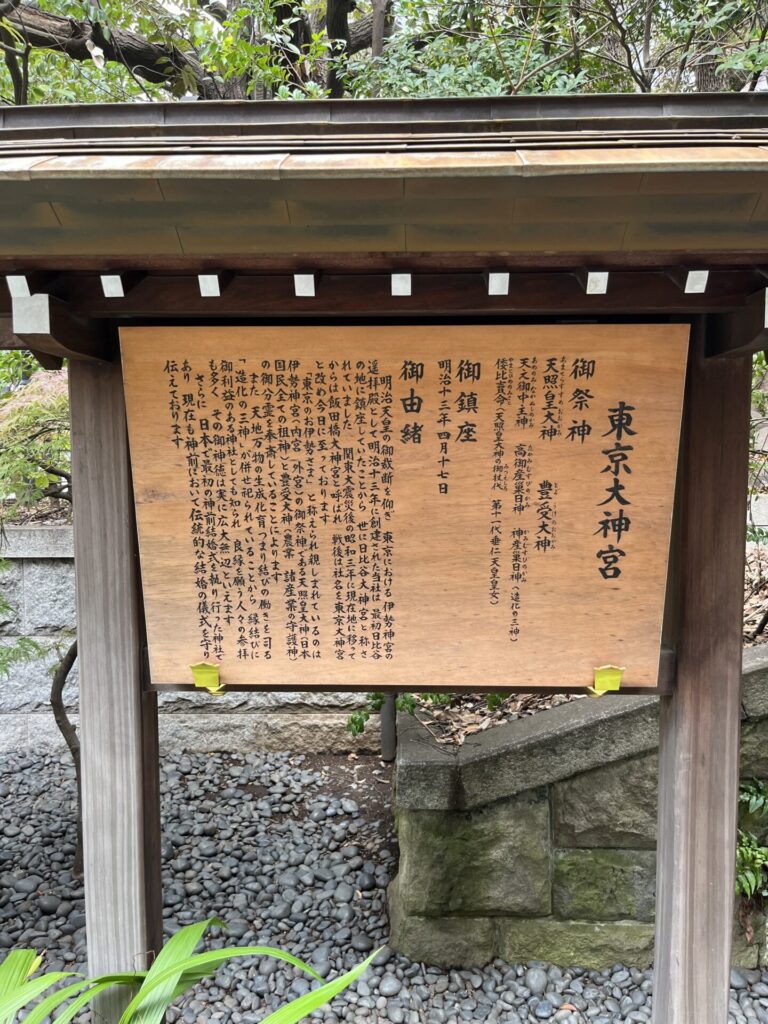 東京大神宮
御祭神
天照皇大神　豊受大神
天之御中主神　高御産巣日神　神産巣日神（造化の三神）
倭比賣命（天照皇大神の御杖代　第十一代垂仁天皇皇女）
御鎮座
明治十三年四月十七日
御由緒
明治天皇の御裁断を仰ぎ　東京における伊勢神宮の
遥拝殿として明治十三年に創建された当社は　最初日比谷
の地に鎮座していたことから　世に日比谷大神宮と称さ
れていました　関東大震災後の昭和三年に現在地に移って
からは飯田橋大神宮と呼ばれ　戦後は社名を東京大神宮
と改め今日に至っております
「東京のお伊勢さま」と称えられ親しまれているのは
伊勢神宮（内宮・外宮）の御祭神である天照皇大神（日本
国民全ての祖神）と豊受大神（農業　諸産業の守護神）
の御分霊を奉斎していることによります
また　天地万物の生成化育つまり結びの働きを司る
「造化の三神」が併せ祀られていることから　縁結びに
御利益のある神社としても知られ　良縁を願う人々の参拝
も多く　その御神徳は実に広大無辺といえます
さらに　日本で最初の神前結婚式を執り行った神社で
あり　現在も神前において伝統的な結婚の儀式を守り
伝えております